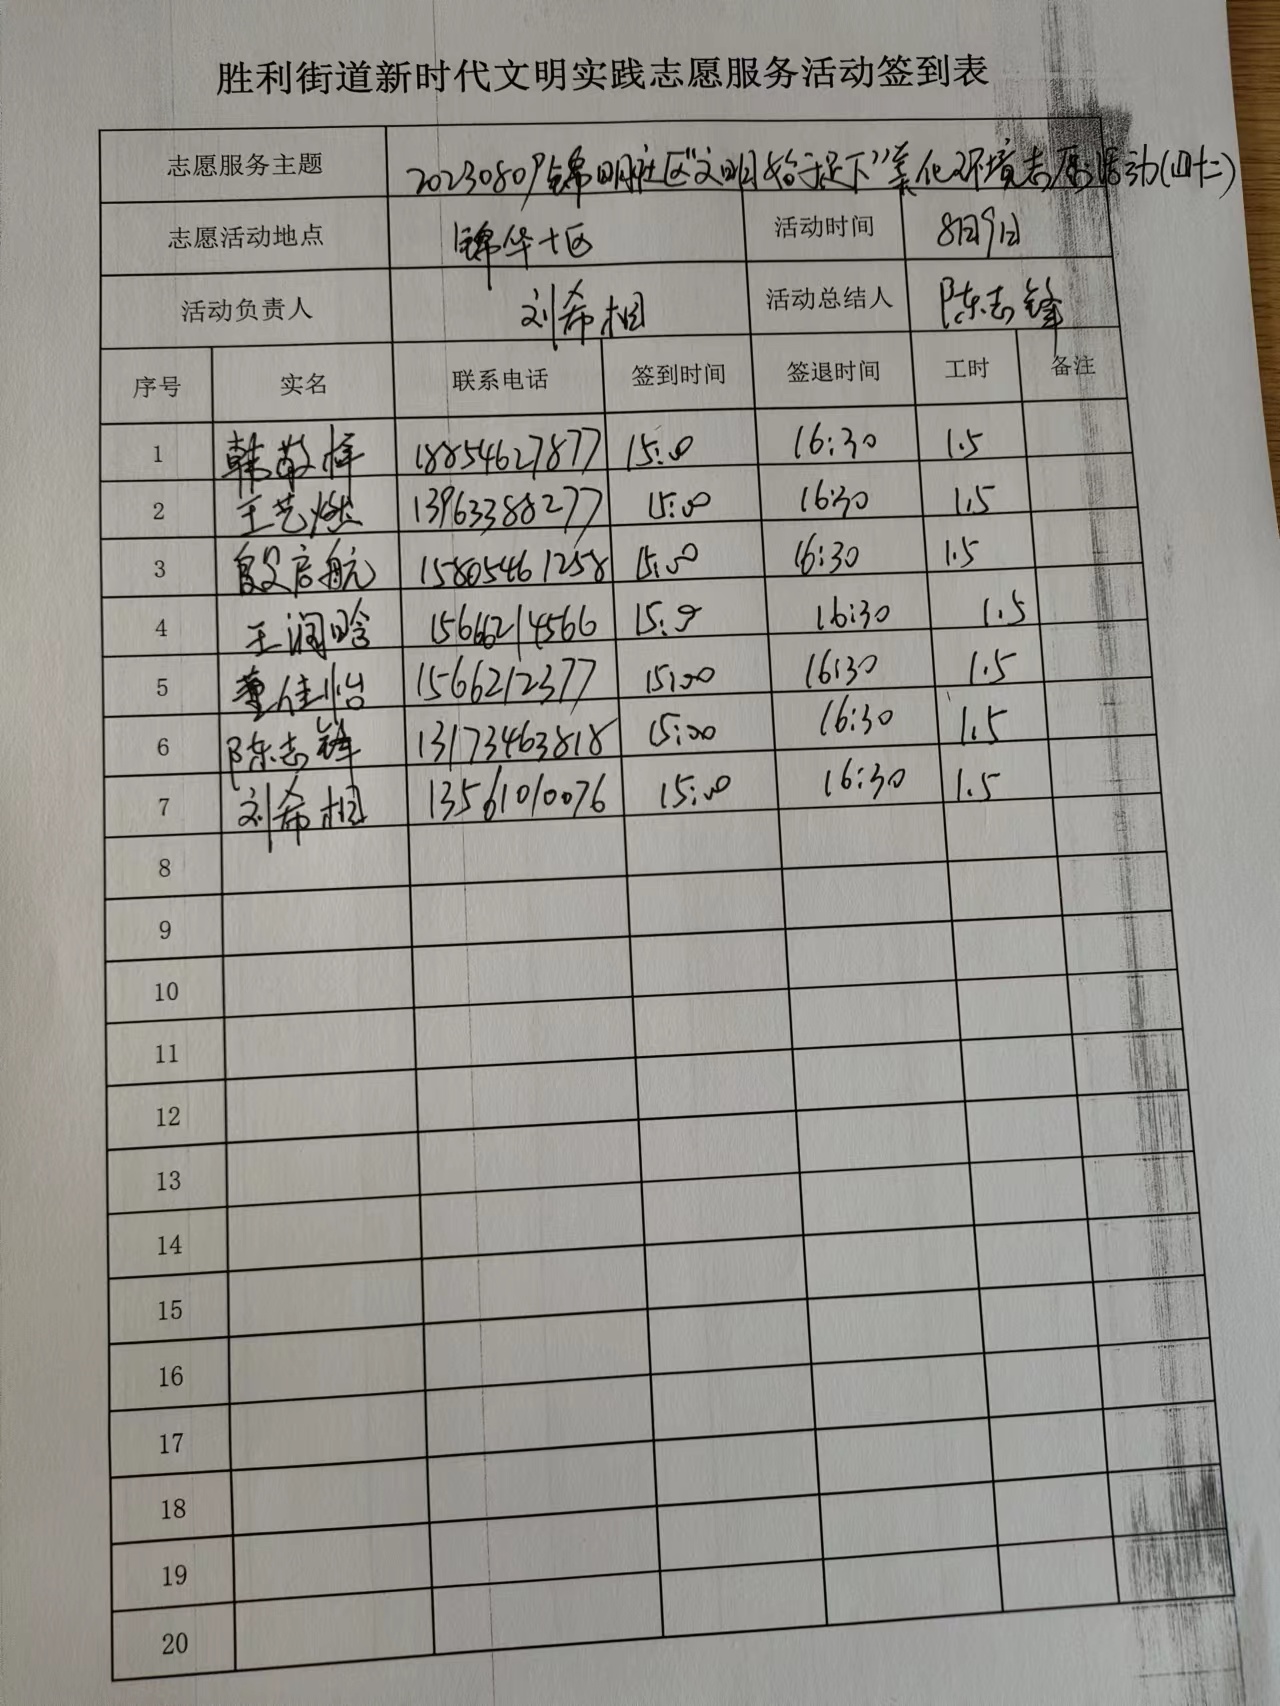 胜利街道新时代文明实践志愿服务活动签到表
志愿服务主题 20230809锦明社区“文明始于足下”美化环境志愿活动(四十二)
志愿活动地点 锦华十区 活动时间 8月9日
活动负责人 刘希相 活动总结人 陈志锋
序号 实名 联系电话 签到时间 签退时间 工时 备注
1 韩敬烊 18854627877 15:00 16:30 1.5
2 王艺燃 13963388277 15:00 16:30 1.5
3 殷启航 15805461258 15:00 16:30 1.5
4 王润晗 15666214566 16:30 1.5
5 董佳怡 1566212377 15:00 16:30 1.5
6 陈志锋 13173463818 15:00 16:30 1.5
7 刘希相 13561010076 15:00 16:30 1.5
8
9
10
11
12
13
14
15
16
17
18
19
20